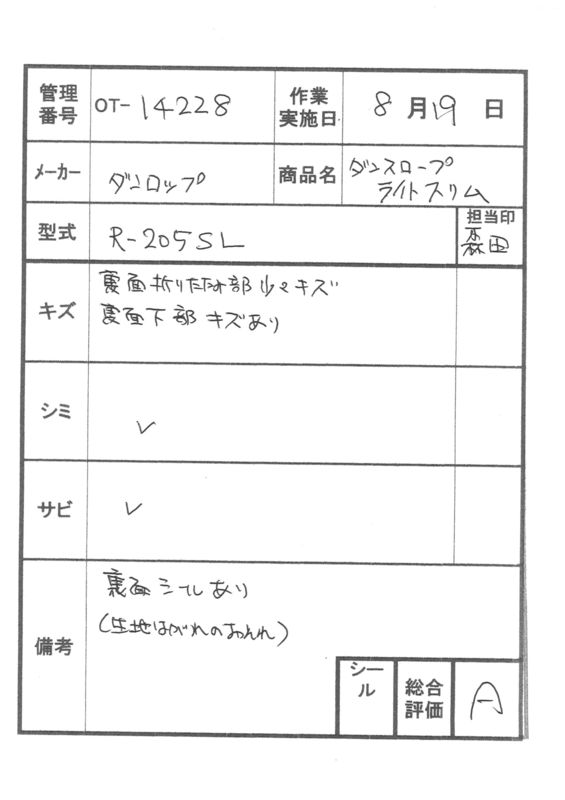 管理番号 OT-14228 作業実施日 8月19日
メーカー ダンロップ 商品名 ダンスロープ
ライトスリム
型式 R-205SL 担当印
森田
キズ 裏面折りたたみ部少々キズ
裏面下部キズあり
シミ ✓
サビ ✓
備考 裏面シールあり
(生地はがれのおそれ)
シール 総合評価 A